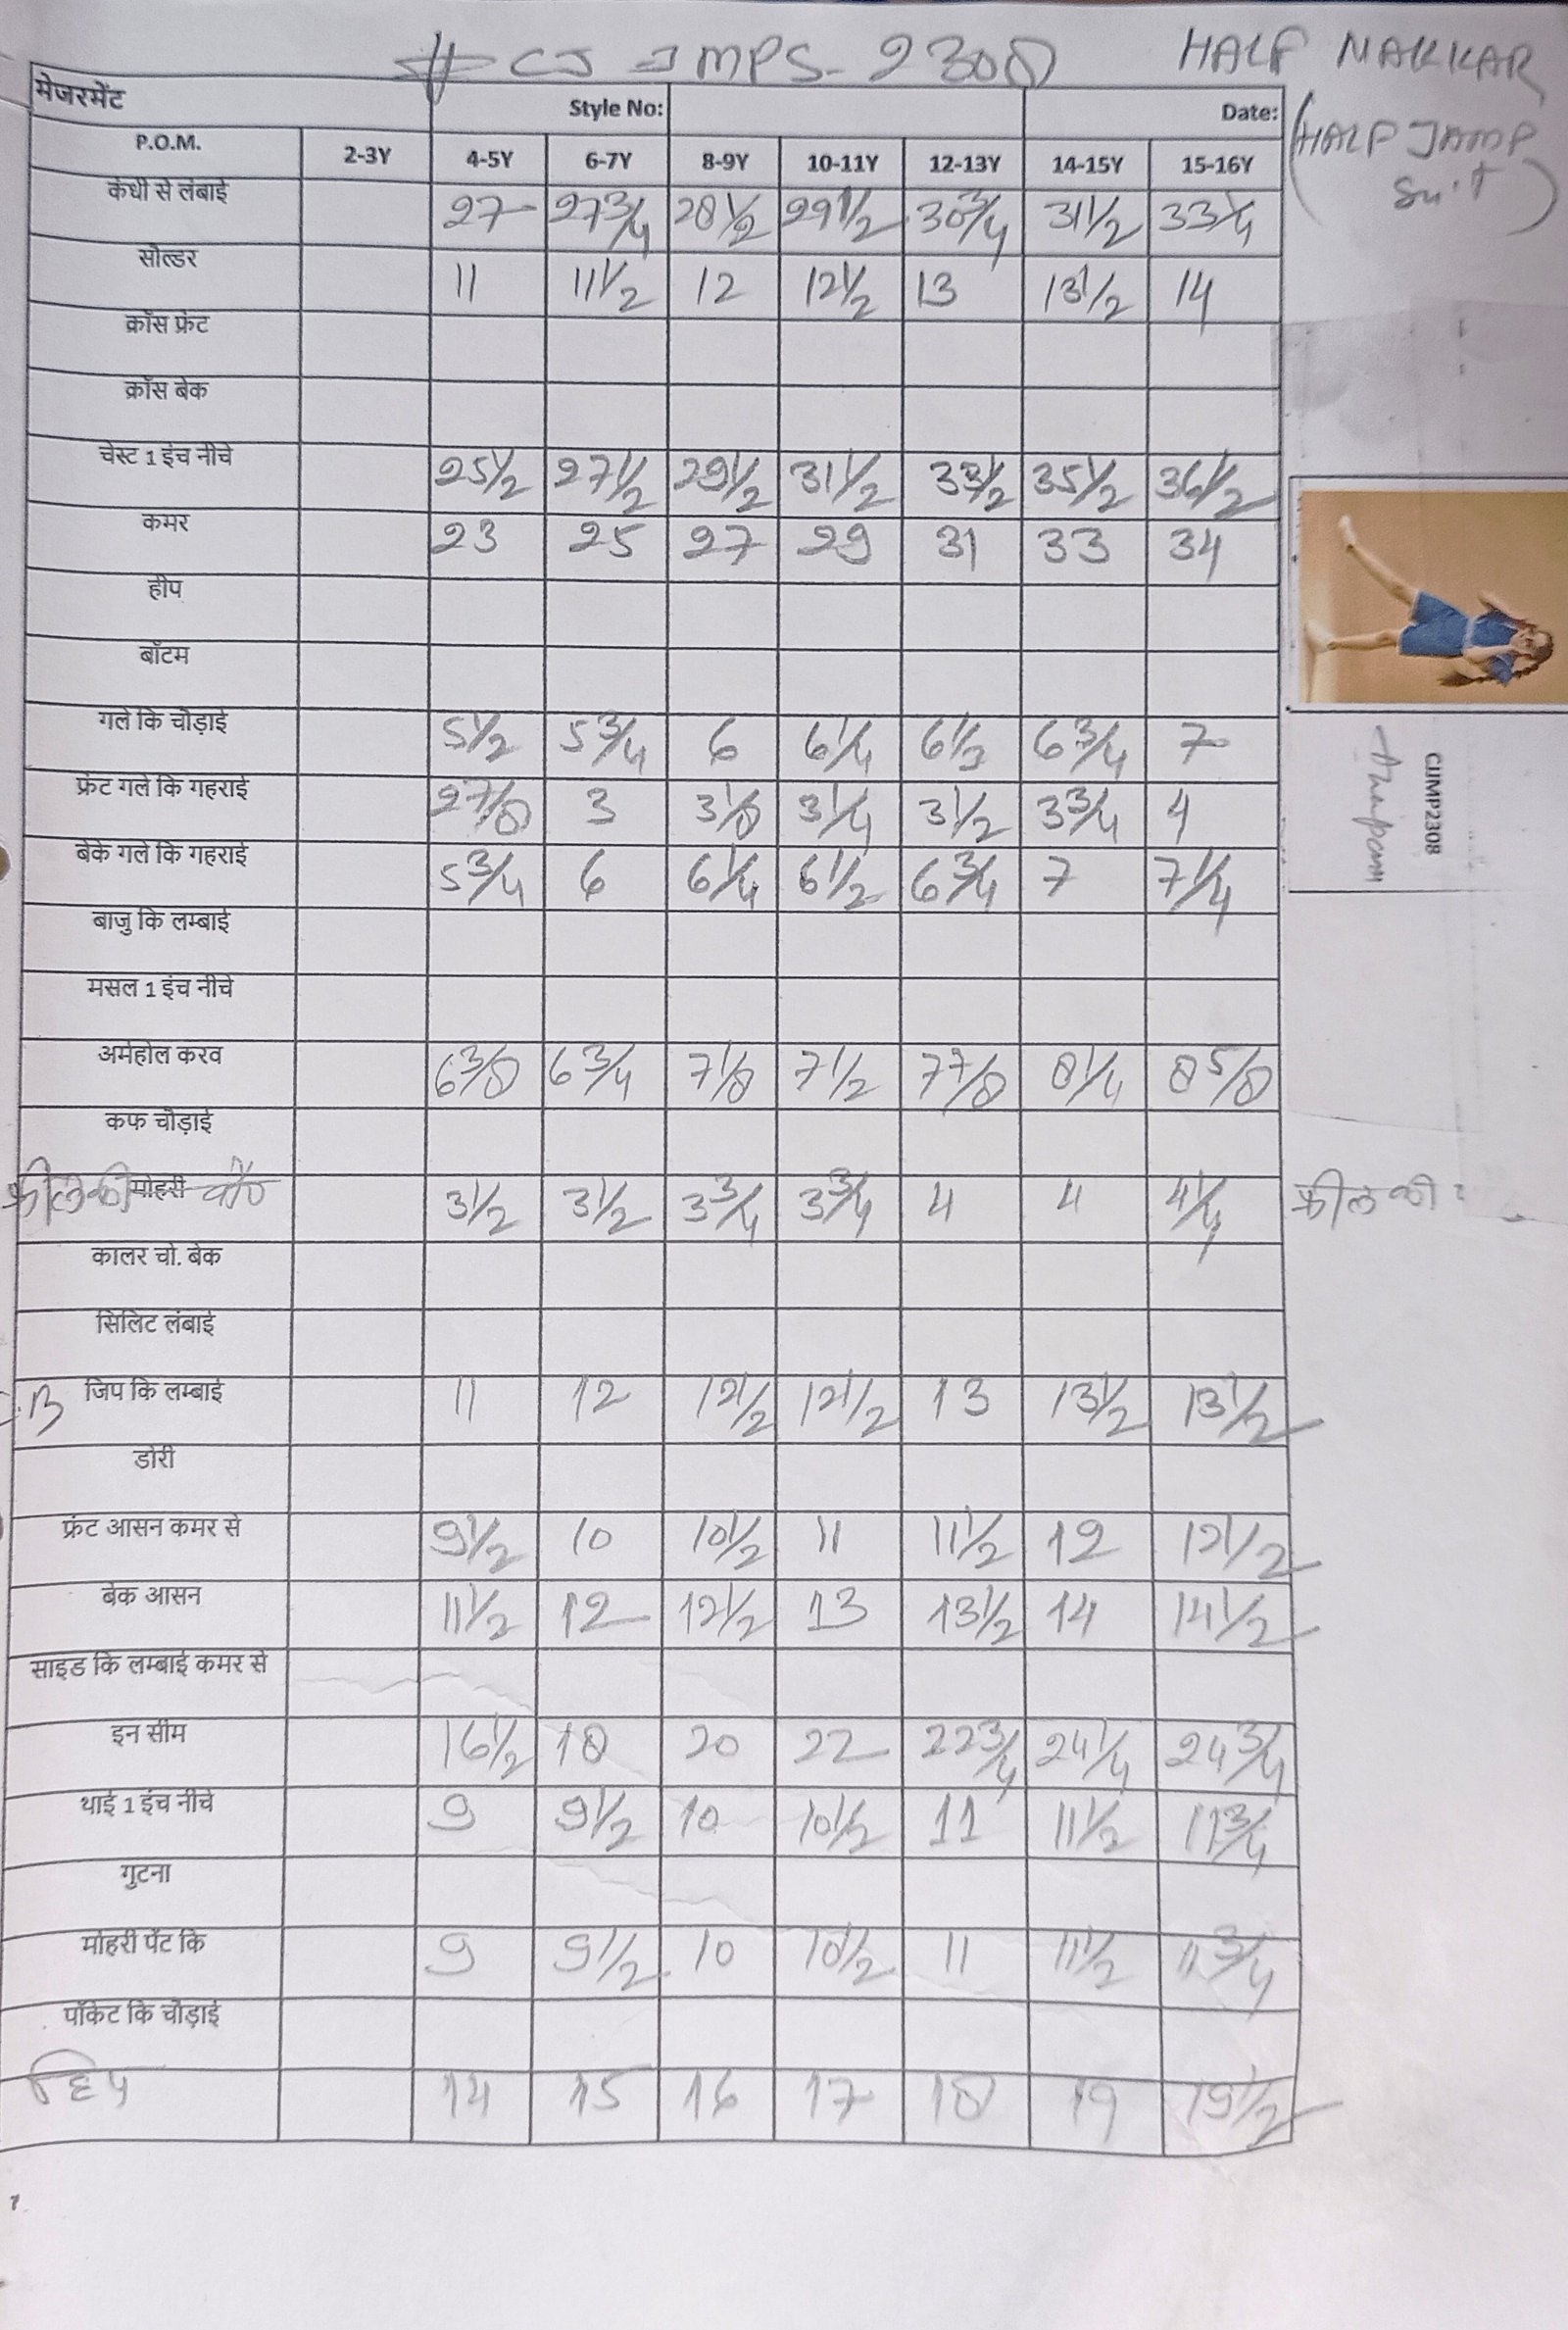 # CJ JMPS-2308 HALF MAKKAR
(HALF JAMP Suit)
मेजरमेंट Style No: Date:
P.O.M. 2-3Y 4-5Y 6-7Y 8-9Y 10-11Y 12-13Y 14-15Y 15-16Y
कंधी से लंबाई 27 27 3/4 28 1/2 29 1/2 30 3/4 31 1/2 33 1/4
सोल्डर 11 11 1/2 12 12 1/2 13 13 1/2 14
क्रॉस फ्रंट
क्रॉस बेक
चेस्ट 1 इंच नीचे 25 1/2 27 1/2 29 1/2 31 1/2 33 1/2 35 1/2 36 1/2
कमर 23 25 27 29 31 33 34
हीप
बॉटम
गले कि चौड़ाई 5 1/2 5 3/4 6 6 1/4 6 1/2 6 3/4 7
फ्रंट गले कि गहराई 2 7/8 3 3 1/8 3 1/4 3 1/2 3 3/4 4
बेक गले कि गहराई 5 3/4 6 6 1/4 6 1/2 6 3/4 7 7 1/4
CJMP2308
बाजु कि लम्बाई
मसल 1 इंच नीचे
अर्महोल करव 6 3/8 6 3/4 7 1/8 7 1/2 7 7/8 8 1/4 8 5/8
कफ चौड़ाई
फ्रील की मोहरी 3 1/2 3 1/2 3 3/4 3 3/4 4 4 4 1/4 फ्रील की
कालर चो. बेक
सिलिट लंबाई
जिप कि लम्बाई 11 12 12 1/2 12 1/2 13 13 1/2 13 1/2
डोरी
फ्रंट आसन कमर से 9 1/2 10 10 1/2 11 11 1/2 12 12 1/2
बेक आसन 11 1/2 12 12 1/2 13 13 1/2 14 14 1/2
साइड कि लम्बाई कमर से
इन सीम 16 1/2 18 20 22 22 3/4 24 1/4 24 3/4
थाई 1 इंच नीचे 9 9 1/2 10 10 1/2 11 11 1/2 11 3/4
गुटना
मोहरी पेंट कि 9 9 1/2 10 10 1/2 11 11 1/2 11 3/4
पॉकेट कि चौड़ाई
हिप 14 15 16 17 18 19 19 1/2